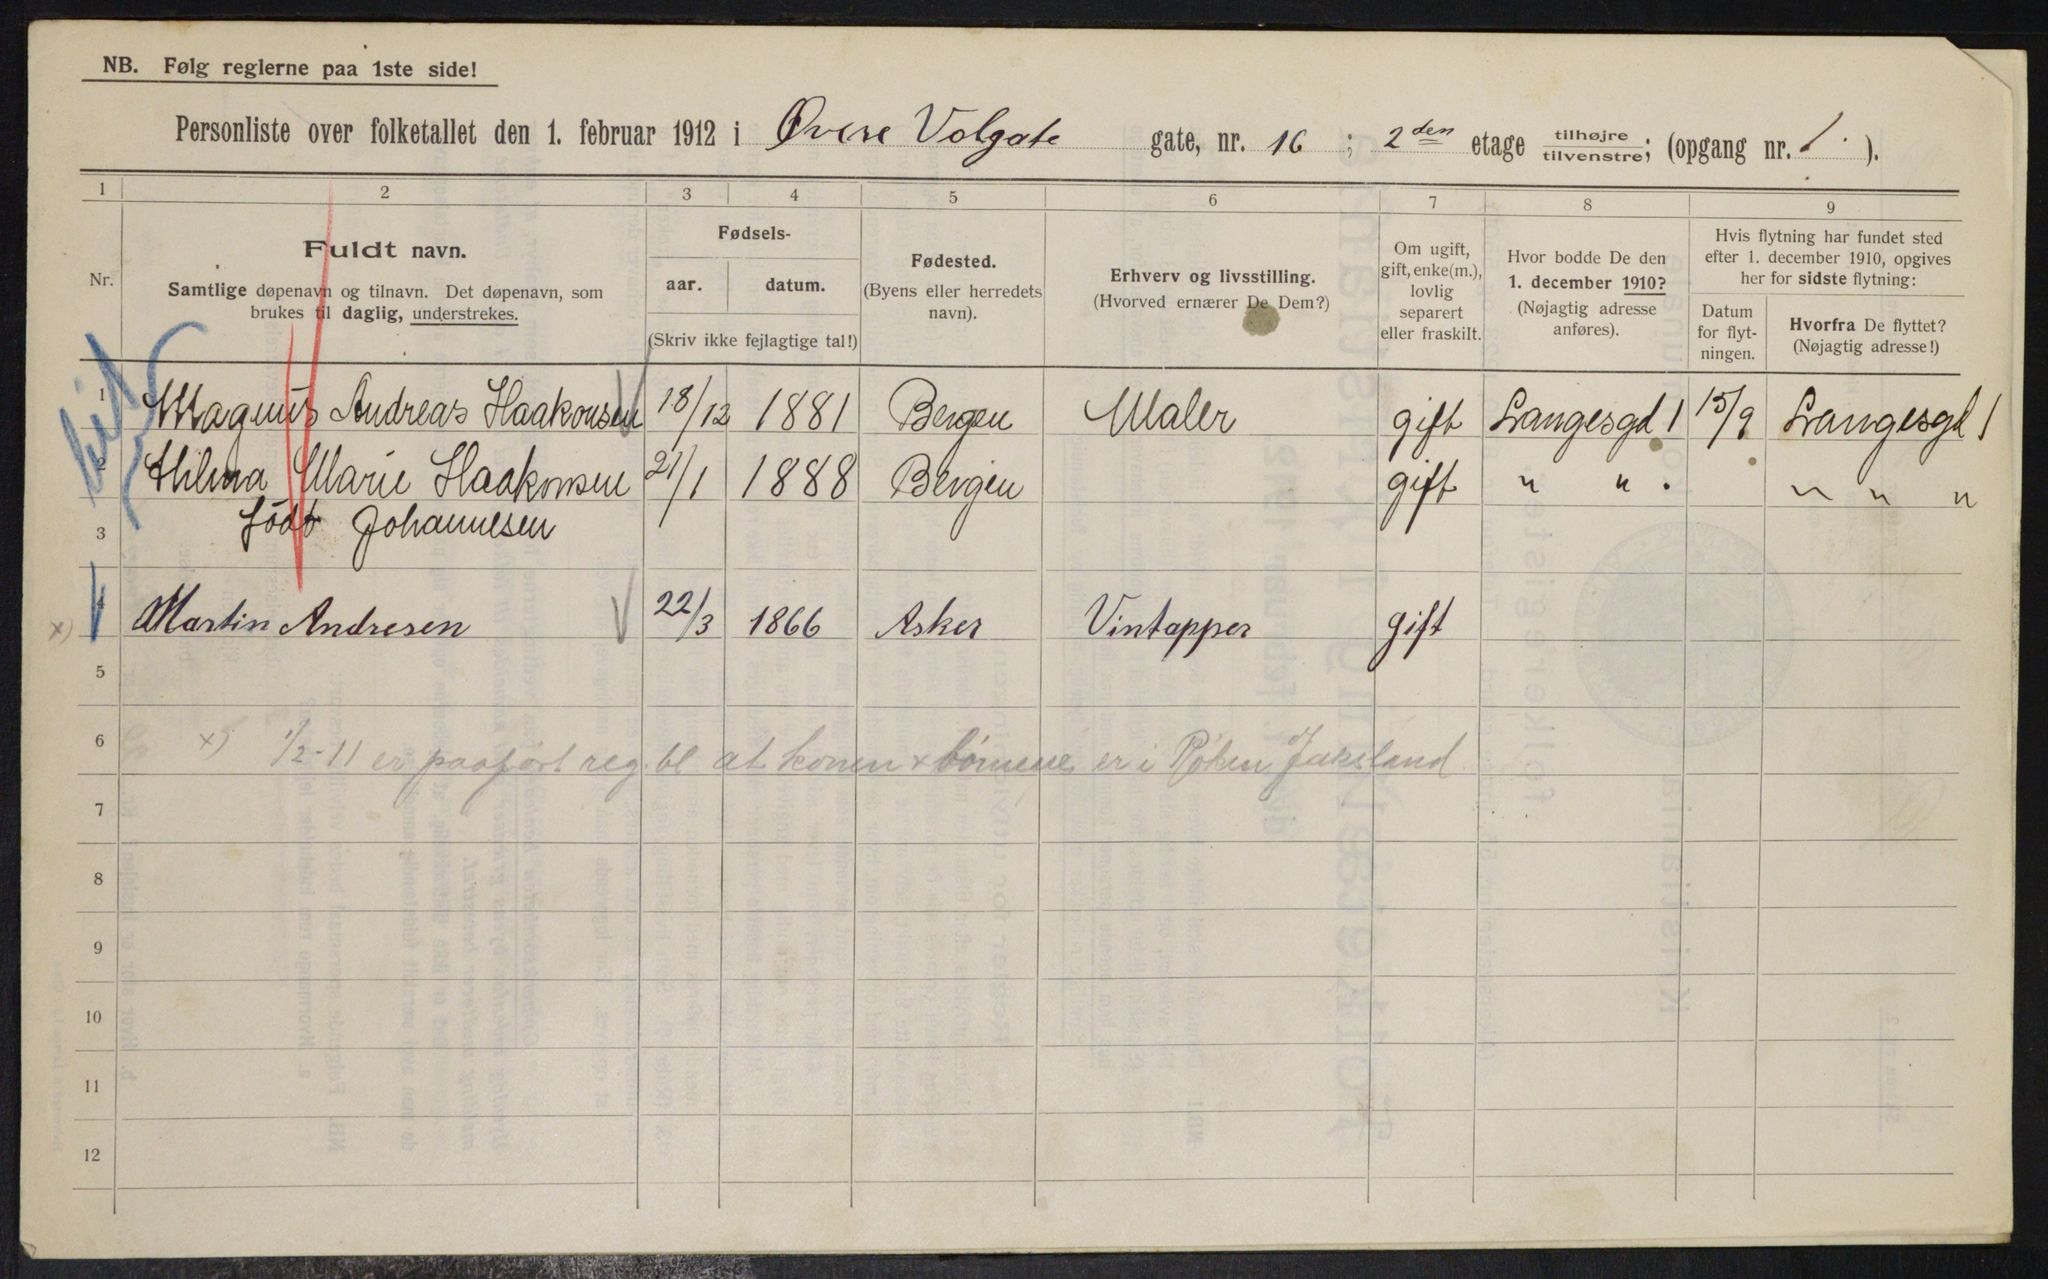 NB. Følg reglerne paa 1ste side!
Personliste over folketallet den 1. februar 1912 i Øvere Volgate gate, nr. 16 ; 2den etage tilhøjre tilvenstre; (opgang nr. 1. ).
1 2 3 4 5 6 7 8 9
Nr.
Fuldt navn.
Samtlige døpenavn og tilnavn. Det døpenavn, som
brukes til daglig, understrekes.
Fødsels-
aar. datum.
(Skriv ikke fejlagtige tal!)
Fødested.
(Byens eller herredets
navn).
Erhverv og livsstilling.
(Hvorved ernærer De Dem?)
Om ugift,
gift, enke(m.),
lovlig
separert
eller fraskilt.
Hvor bodde De den
1. december 1910?
(Nøjagtig adresse
anføres).
Hvis flytning har fundet sted
efter 1. december 1910, opgives
her for sidste flytning:
Datum
for flyt-
ningen.
Hvorfra De flyttet?
(Nøjagtig adresse!)
1 Magnus Andreas Haakonsen 18/12 1881 Bergen Maler gift Langesgd 1 15/9 Langesgd 1
2 Hilma Marie Haakonsen 21/1 1888 Bergen gift " " . " " "
3 født Johannesen
x) 4 Martin Andresen 22/3 1866 Asker Vintapper gift
5
6 x) 1/2-11 er paaført reg. bl. at konen & børnene er i Røken Jaksland
7
8
9
10
11
12